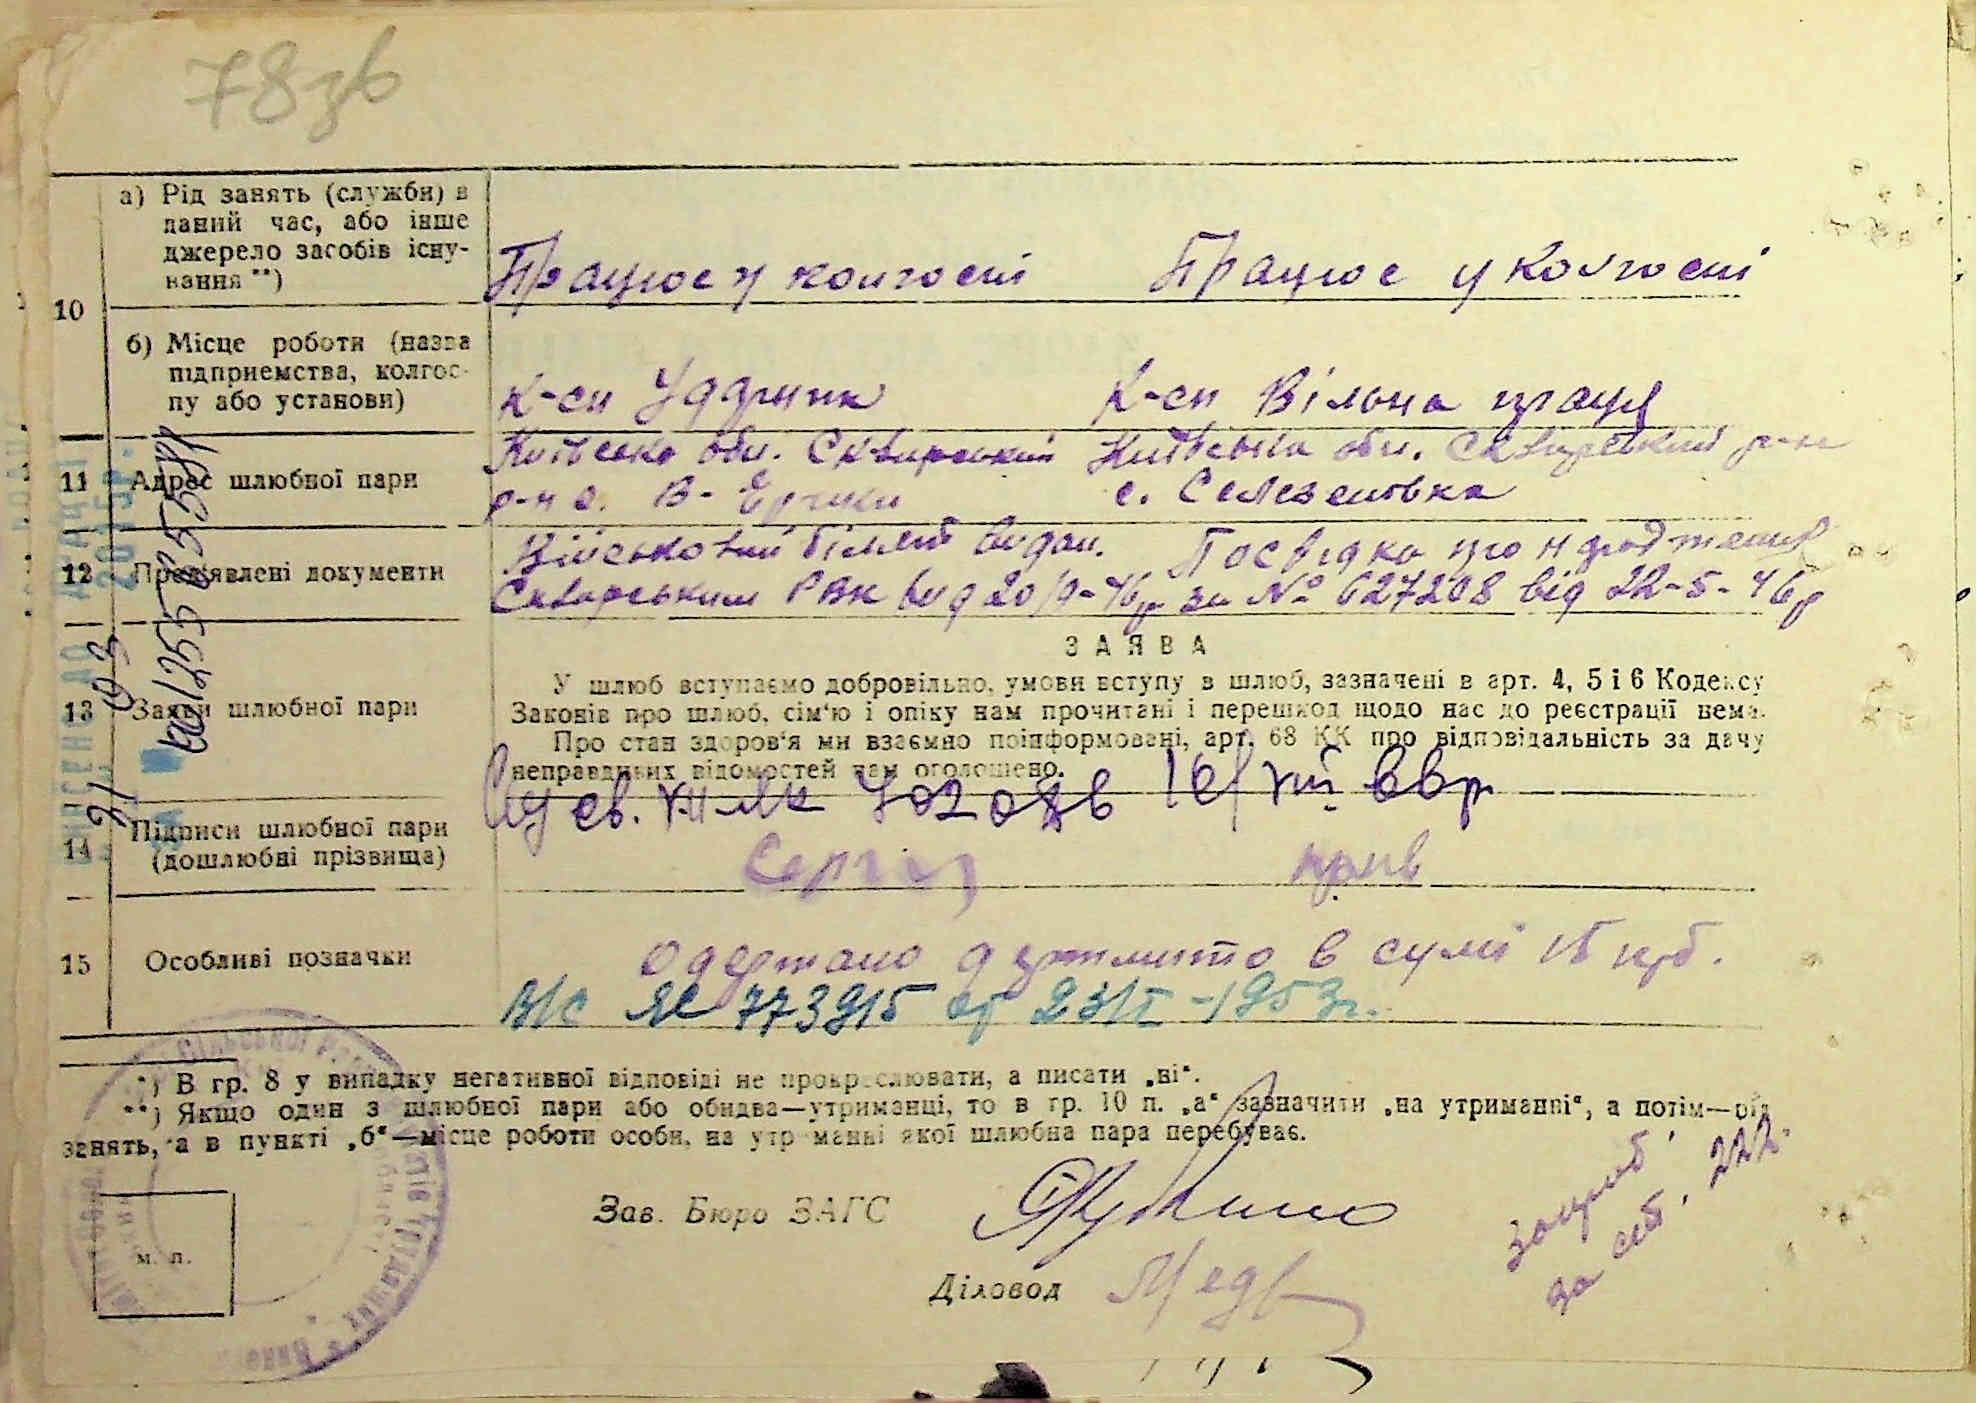 78зв
а) Рід занять (служби) в
даний час, або інше
джерело засобів існу-
вання **)
Працює у колгоспі Працює у колгоспі
10
б) Місце роботи (назва
підприємства, колгос-
пу або установи)
К-сп Ударник К-сп Вільна праця
11 Адрес шлюбної пари
Київська обл. Сквирський Київська обл. Сквирський р-н
р-н с. В-Єрчики с. Селезенівка
12 Пред'явлені документи
Військовий білет видан. Посвідка про народження
Сквирським РВК від 20/9-46р за № 627208 від 22-5-46р
13 Заяви шлюбної пари
ЗАЯВА
У шлюб вступаємо добровільно, умови вступу в шлюб, зазначені в арт. 4, 5 і 6 Кодексу
Законів про шлюб, сім'ю і опіку нам прочитані і перешкод щодо нас до реєстрації нема.
Про стан здоров'я ми взаємно поінформовані, арт. 68 КК про відповідальність за дачу
неправдивих відомостей нам оголошено.
14 Підписи шлюбної пари
(дошлюбні прізвища)
15 Особливі позначки
Одержано держмито в сумі 15 крб.
773915 от 23/I-1953г.
*) В гр. 8 у випадку негативної відповіді не прокреслювати, а писати „ні“.
**) Якщо один з шлюбної пари або обидва—утриманці, то в гр. 10 п. „а“ зазначити „на утриманні“, а потім—рід
занять, а в пункті „б“—місце роботи особи, на утриманні якої шлюбна пара перебуває.
Зав. Бюро ЗАГС
м. п.
Діловод
за 222.